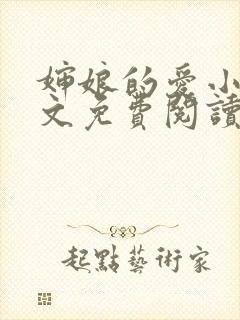 婶娘的爱小
文免費閱讀
起點藝術家